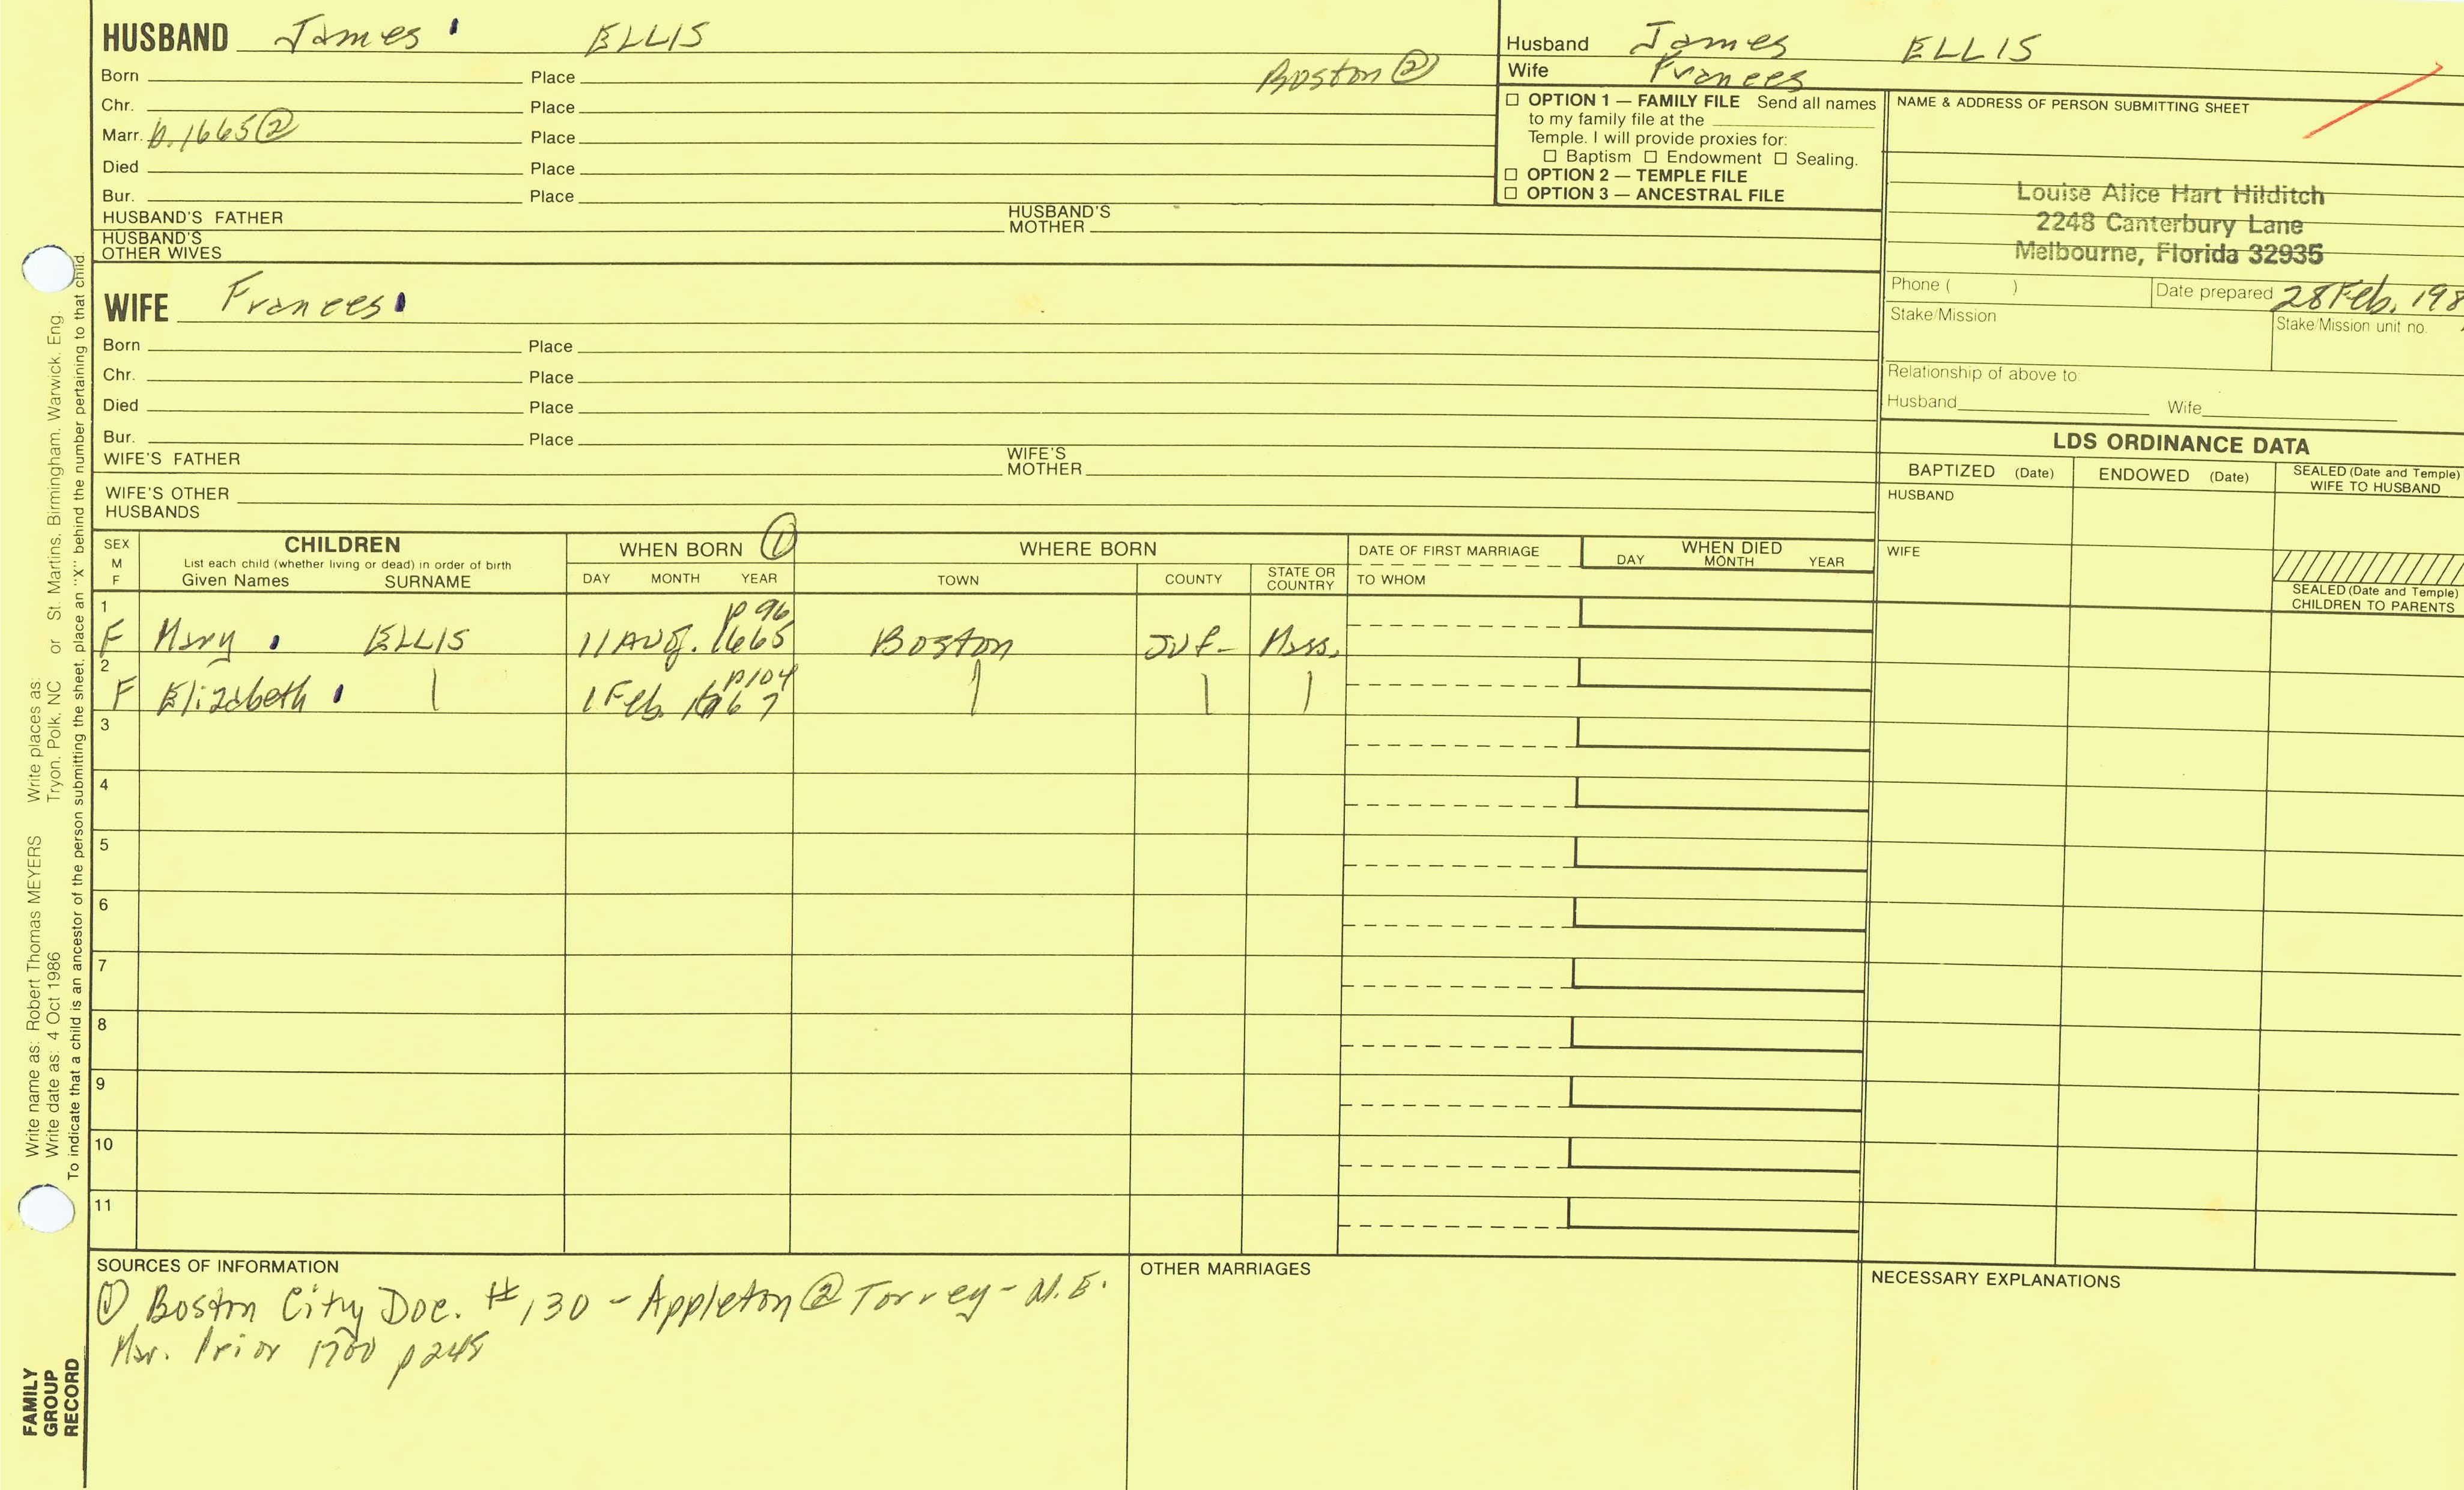 HUSBAND James ELLIS
Born Place Boston ②
Chr. Place
Marr. b. 1665 ② Place
Died Place
Bur. Place
HUSBAND'S FATHER HUSBAND'S MOTHER
HUSBAND'S OTHER WIVES
Husband James ELLIS
Wife Frances
☐ OPTION 1 — FAMILY FILE Send all names
to my family file at the
Temple. I will provide proxies for:
☐ Baptism ☐ Endowment ☐ Sealing.
☐ OPTION 2 — TEMPLE FILE
☐ OPTION 3 — ANCESTRAL FILE
NAME & ADDRESS OF PERSON SUBMITTING SHEET
Louise Alice Hart Hilditch
2248 Canterbury Lane
Melbourne, Florida 32935
Phone ( ) Date prepared 28 Feb. 198
Stake/Mission Stake/Mission unit no.
Relationship of above to:
Husband Wife
WIFE Frances
Born Place
Chr. Place
Died Place
Bur. Place
WIFE'S FATHER WIFE'S MOTHER
WIFE'S OTHER HUSBANDS
LDS ORDINANCE DATA
BAPTIZED (Date) ENDOWED (Date) SEALED (Date and Temple) WIFE TO HUSBAND
HUSBAND
WIFE
SEALED (Date and Temple)
CHILDREN TO PARENTS
SEX M F
CHILDREN
List each child (whether living or dead) in order of birth
Given Names SURNAME
WHEN BORN ①
DAY MONTH YEAR
WHERE BORN
TOWN COUNTY STATE OR COUNTRY
DATE OF FIRST MARRIAGE
TO WHOM
WHEN DIED
DAY MONTH YEAR
1 p 96
F Mary ELLIS 11 Aug. 1665 Boston Suf- Mass.
2 p104
F Elizabeth | 1 Feb. 1667 | | |
3
4
5
6
7
8
9
10
11
SOURCES OF INFORMATION
① Boston City Doc. #130 - Appleton ② Torrey - N.E.
Mar. Prior 1700 p245
OTHER MARRIAGES
NECESSARY EXPLANATIONS
Write name as: Robert Thomas MEYERS Write places as: Tryon, Polk, NC or St. Martins, Birmingham, Warwick, Eng.
Write date as: 4 Oct 1986
To indicate that a child is an ancestor of the person submitting the sheet, place an "X" behind the number pertaining to that child.
FAMILY
GROUP
RECORD